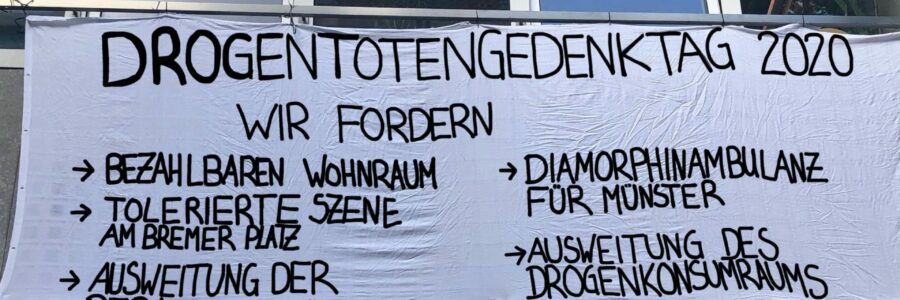 DROGENTOTENGEDENKTAG 2020
WIR FORDERN
→ BEZAHLBAREN WOHNRAUM
→ TOLERIERTE SZENE
AM BREMER PLATZ
→ AUSWEITUNG DER
→ DIAMORPHINAMBULANZ
FÜR MÜNSTER
→ AUSWEITUNG DES
DROGENKONSUMRAUMS